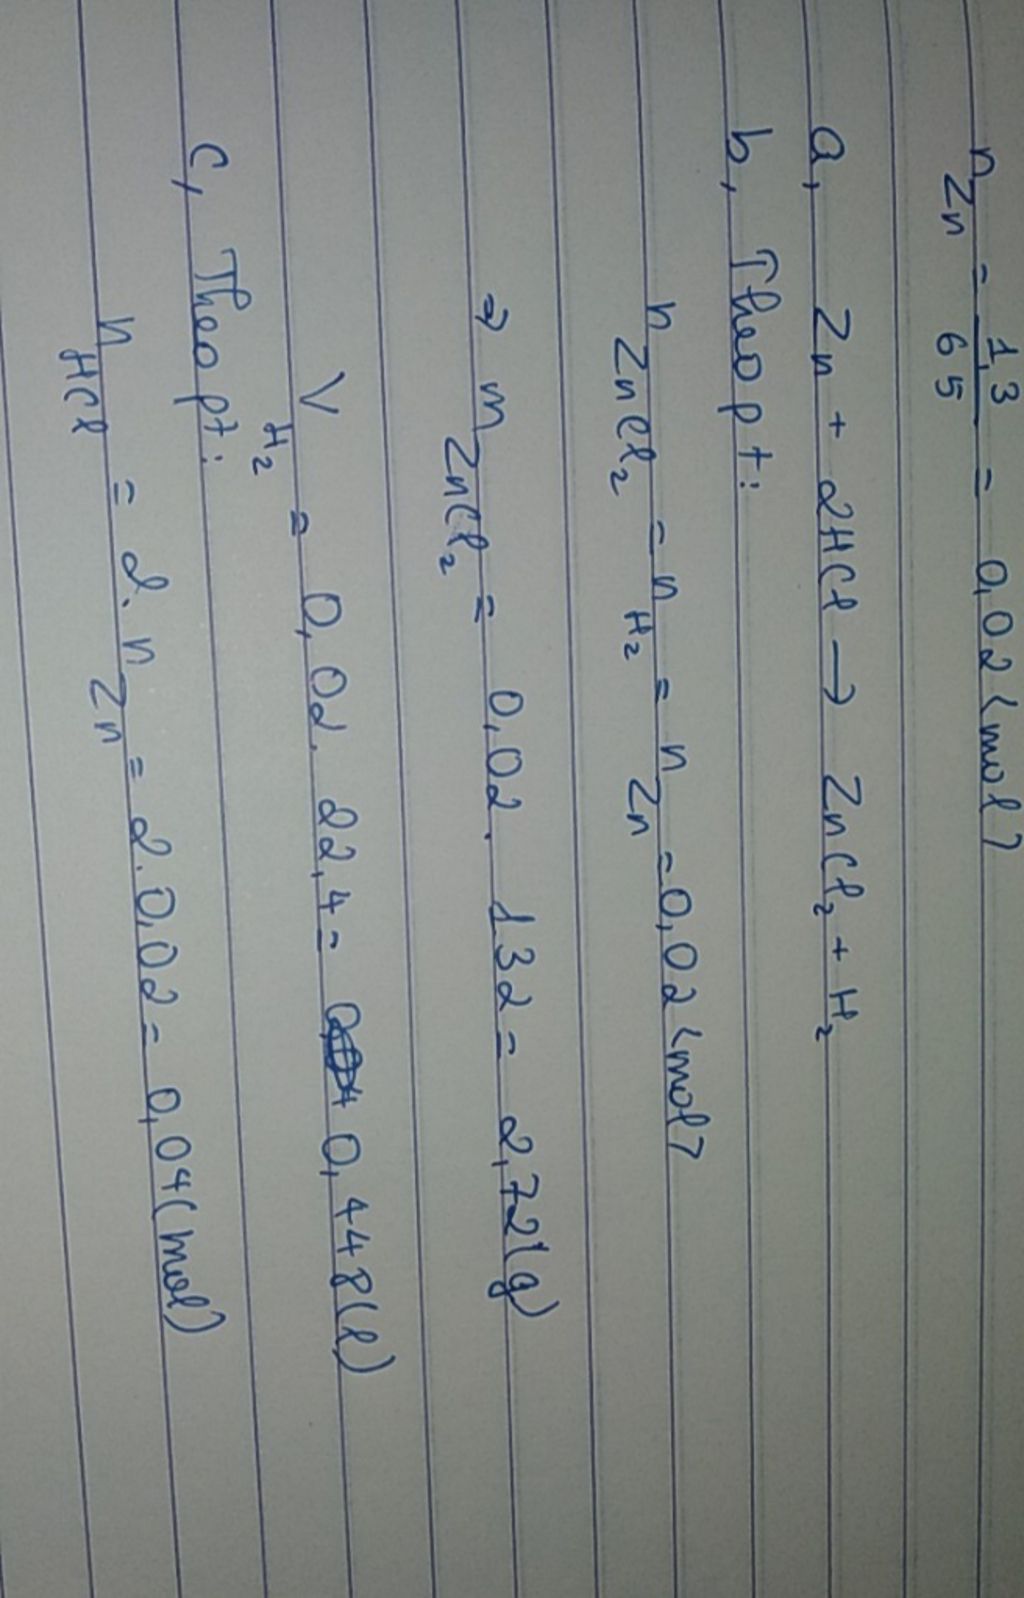 n Zn = 1,3 / 65 = 0,02 <mol>
a, Zn + 2HCl → ZnCl₂ + H₂
b, Theo pt:
n ZnCl₂ = n H₂ = n Zn = 0,02 <mol>
⇒ m ZnCl₂ = 0,02. 132 = 2,72 (g)
V H₂ = 0,02. 22,4 = 0,448 (l)
c, Theo pt:
n HCl = 2. n Zn = 2.0,02 = 0,04 (mol)